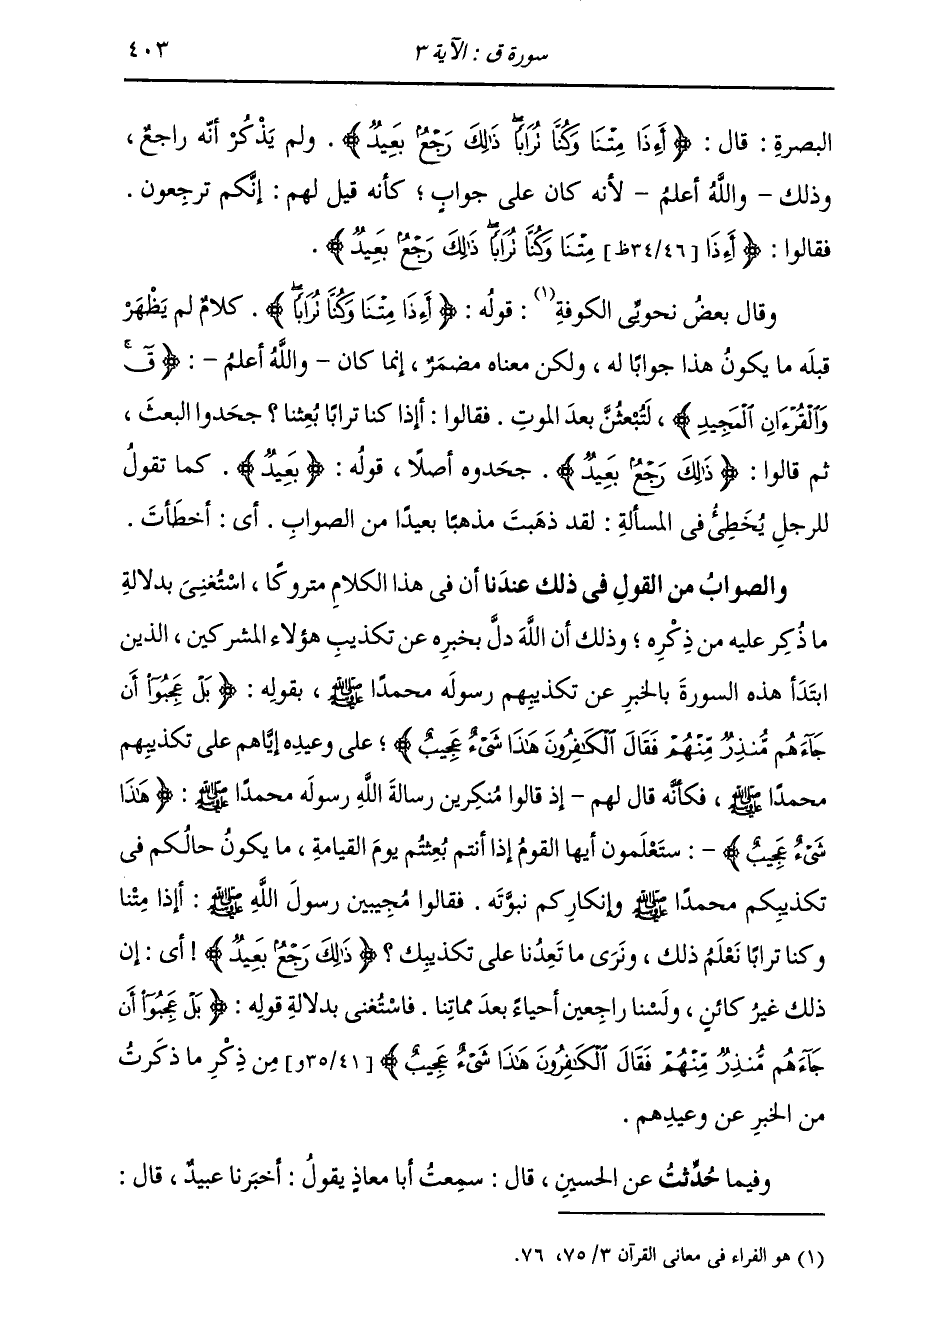 سورة ق : الآية ٣
٤٠٣
البصرةِ : قال : ﴿ أَءِذَا مِتْنَا وَكُنَّا تُرَابًا ذَٰلِكَ رَجْعٌ بَعِيدٌ ﴾ . ولم يَذْكُرْ أنَّه راجعٌ ،
وذلك – واللَّهُ أعلمُ – لأنه كان على جوابٍ ؛ كأنه قيل لهم : إنَّكم ترجِعون .
فقالوا : ﴿ أَءِذَا [٣٤/٤٦ظ] مِتْنَا وَكُنَّا تُرَابًا ذَٰلِكَ رَجْعٌ بَعِيدٌ ﴾ .
وقال بعضُ نحويِّى الكوفةِ(١) : قولُه : ﴿ أَءِذَا مِتْنَا وَكُنَّا تُرَابًا ﴾ . كلامٌ لم يَظْهَرْ
قبلَه ما يكونُ هذا جوابًا له ، ولكن معناه مضمَرٌ ، إنما كان – واللَّهُ أعلمُ – : ﴿ قٓ
وَٱلْقُرْءَانِ ٱلْمَجِيدِ ﴾ ، لَتُبْعثُنَّ بعدَ الموتِ . فقالوا : أإذا كنا ترابًا بُعِثنا ؟ جحَدوا البعثَ ،
ثم قالوا : ﴿ ذَٰلِكَ رَجْعٌ بَعِيدٌ ﴾ . جحَدوه أصلًا ، قولُه : ﴿ بَعِيدٌ ﴾ . كما تقولُ
للرجلِ يُخَطِئُ فى المسألةِ : لقد ذهَبتَ مذهبًا بعيدًا من الصوابِ . أى : أخطَأتَ .
والصوابُ من القولِ فى ذلك عندَنا أن فى هذا الكلامِ متروكًا ، اسْتُغنِىَ بدلالةِ
ما ذُكِر عليه من ذِكْرِه ؛ وذلك أن اللَّهَ دلَّ بخبرِه عن تكذيبِ هؤلاء المشركين ، الذين
ابتَدَأ هذه السورةَ بالخبرِ عن تكذيبِهم رسولَه محمدًا ﷺ ، بقولِه : ﴿ بَلْ عَجِبُوٓا۟ أَن
جَآءَهُم مُّنذِرٌ مِّنْهُمْ فَقَالَ ٱلْكَٰفِرُونَ هَٰذَا شَىْءٌ عَجِيبٌ ﴾ ؛ على وعيدِه إيَّاهم على تكذيبِهم
محمدًا ﷺ ، فكأنَّه قال لهم – إذ قالوا مُنكِرين رسالةَ اللَّهِ رسولَه محمدًا ﷺ : ﴿ هَٰذَا
شَىْءٌ عَجِيبٌ ﴾ – : ستَعْلَمون أيها القومُ إذا أنتم بُعِثتُم يومَ القيامةِ ، ما يكونُ حالُكم فى
تكذيبِكم محمدًا ﷺ وإنكارِكم نبوَّتَه . فقالوا مُجِيبين رسولَ اللَّهِ ﷺ : أإذا مِتْنا
وكنا ترابًا نَعْلَمُ ذلك ، ونَرَى ما تَعِدُنا على تكذيبِك ؟ ﴿ ذَٰلِكَ رَجْعٌ بَعِيدٌ ﴾ ! أى : إن
ذلك غيرُ كائنٍ ، ولَسْنا راجعين أحياءً بعدَ مماتِنا . فاستُغنى بدلالةِ قولِه : ﴿ بَلْ عَجِبُوٓا۟ أَن
جَآءَهُم مُّنذِرٌ مِّنْهُمْ فَقَالَ ٱلْكَٰفِرُونَ هَٰذَا شَىْءٌ عَجِيبٌ ﴾ [٣٥/٤١و] مِن ذِكْرِ ما ذكَرتُ
من الخبرِ عن وعيدِهم .
وفيما حُدِّثتُ عن الحسينِ ، قال : سمِعتُ أبا معاذٍ يقولُ : أخبَرنا عبيدٌ ، قال :
(١) هو الفراء فى معانى القرآن ٣/ ٧٥، ٧٦.